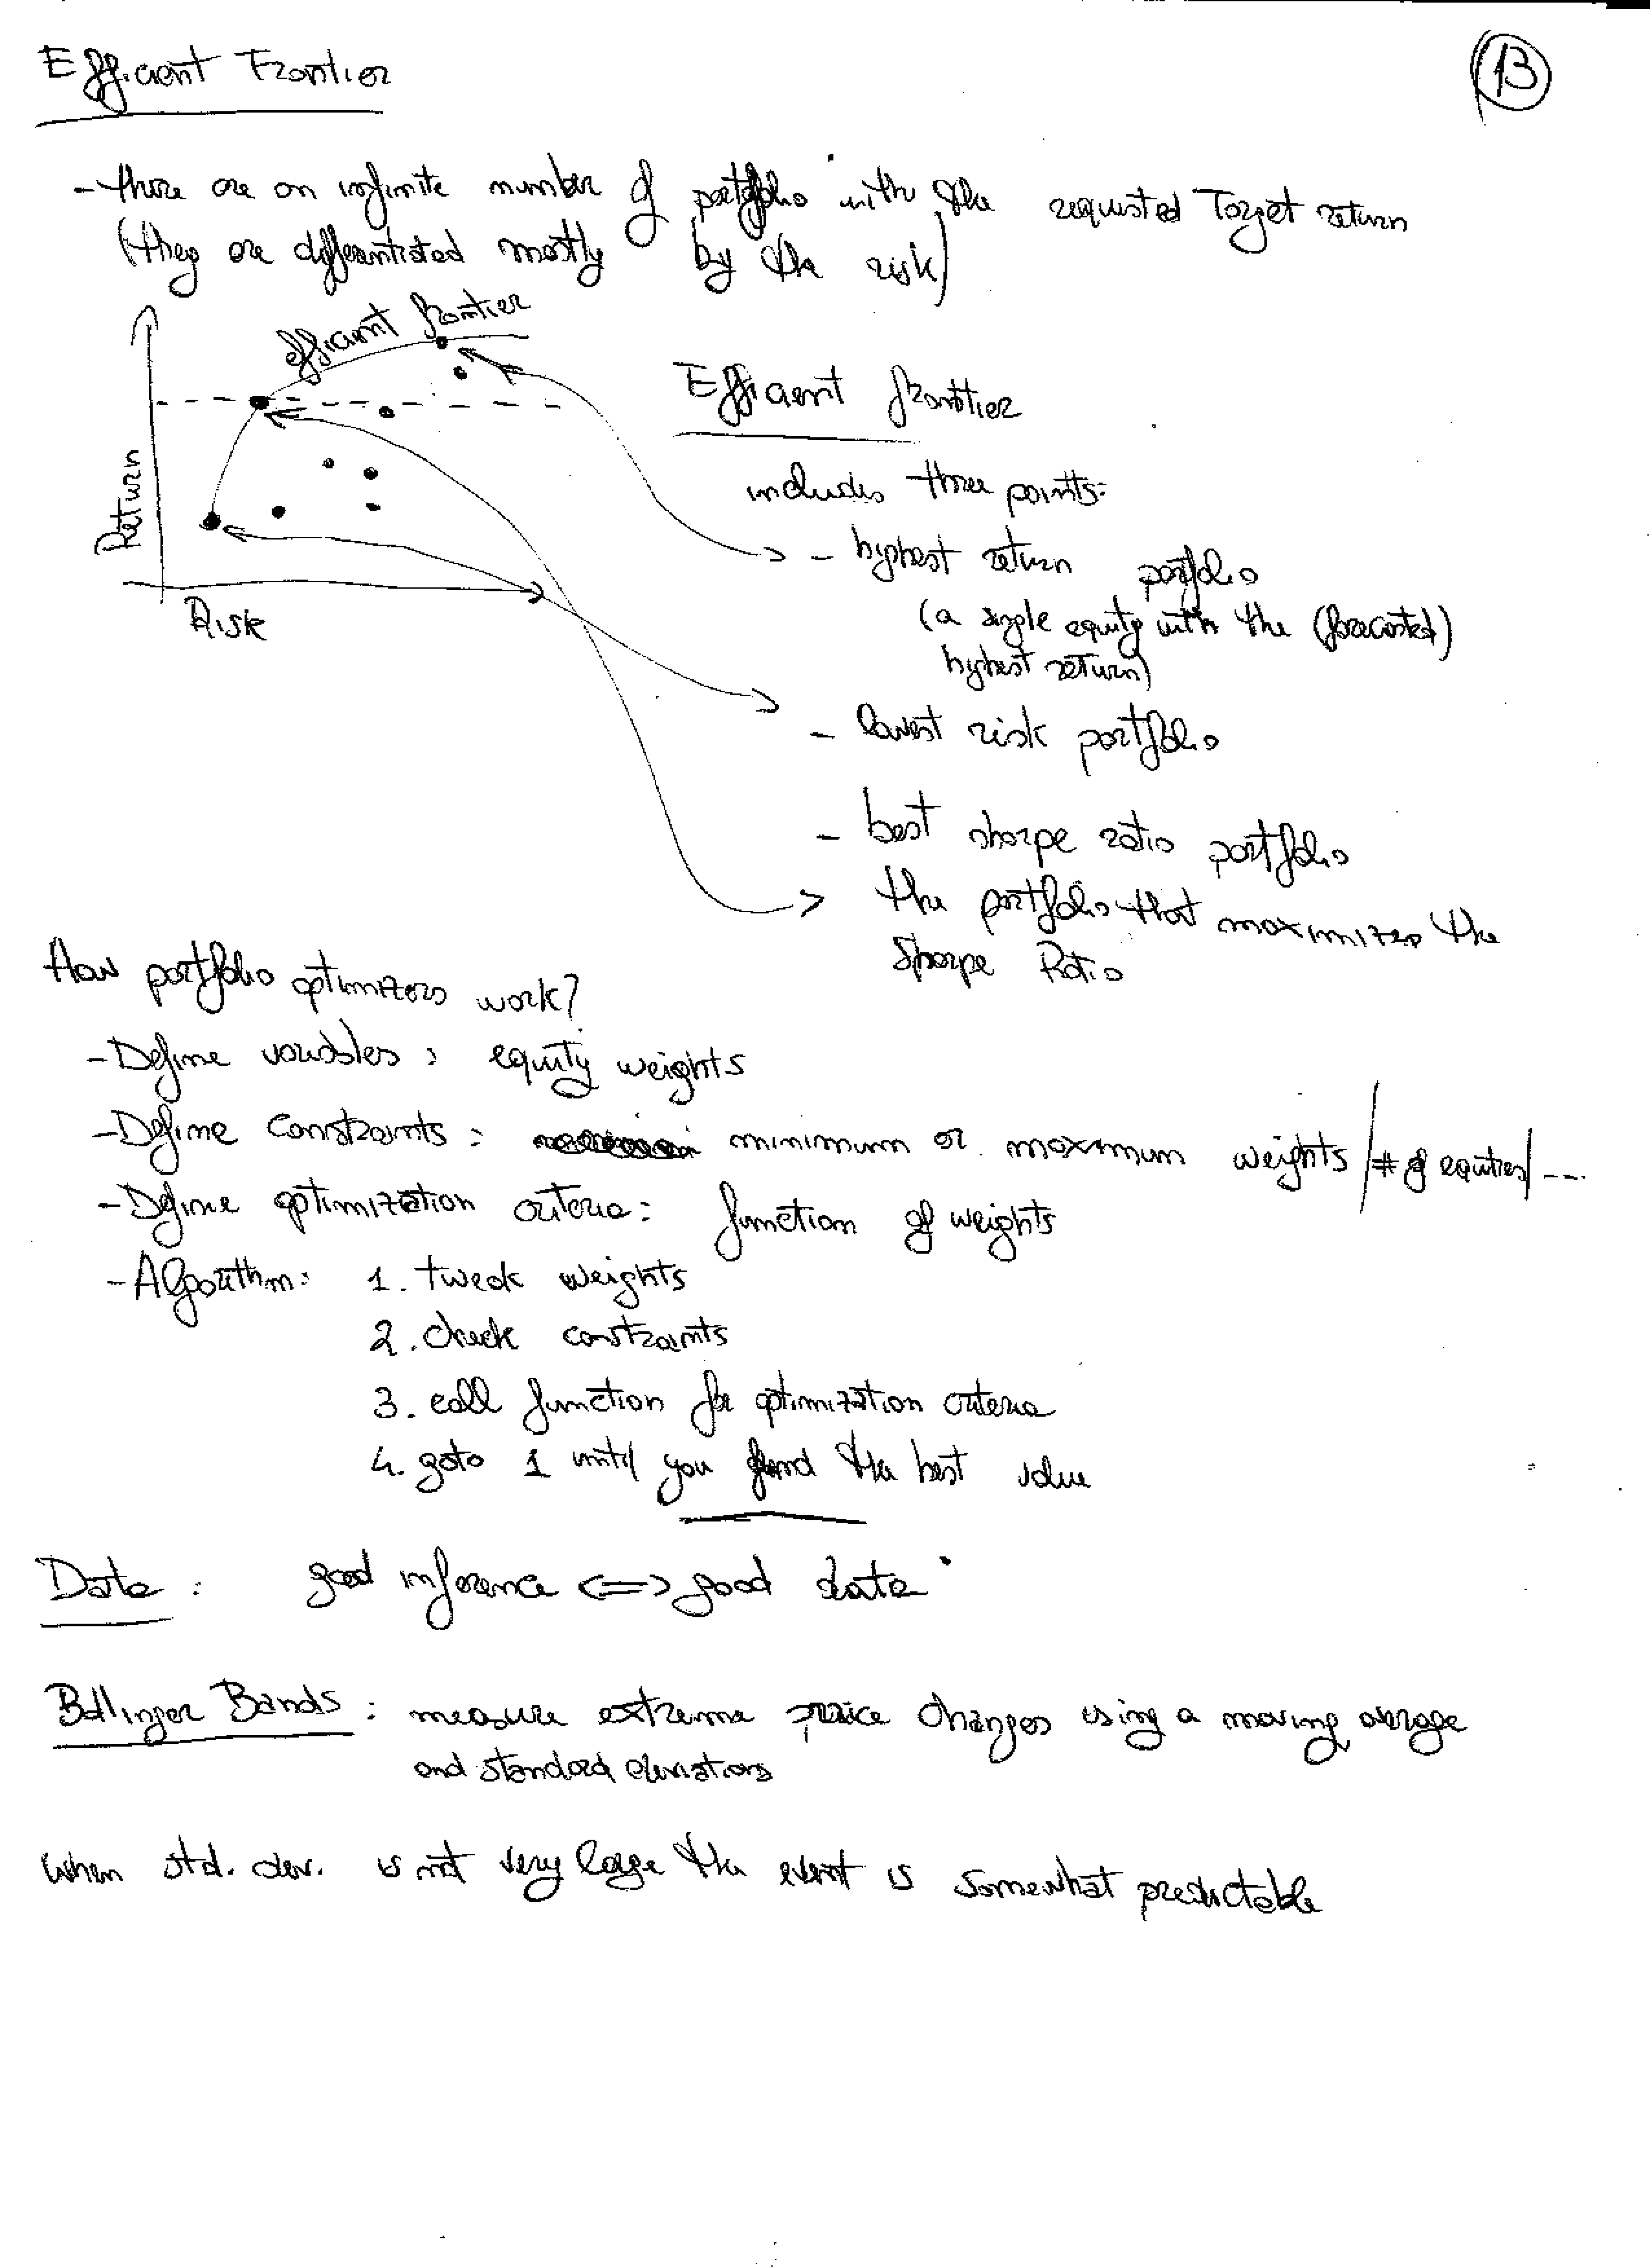 Efficient Frontier
13
- there are an infinite number of portfolio with the requested Target return
(they are differentiated mostly by the risk)
efficient frontier
Return
Risk
Efficient frontier
includes three points:
- highest return portfolio
(a single equity with the (forecasted)
highest return)
- lowest risk portfolio
- best sharpe ratio portfolio
the portfolio that maximizes the
Sharpe Ratio
How portfolio optimizers work?
- Define variables: equity weights
- Define constraints: minimum or maximum weights / # of equities / ...
- Define optimization criteria: function of weights
- Algorithm: 1. tweak weights
2. check constraints
3. call function for optimization criteria
4. goto 1 until you find the best value
Data: good inference <=> good data
Bollinger Bands: measure extreme price changes using a moving average
and standard deviations
when std. dev. is not very large the event is somewhat predictable